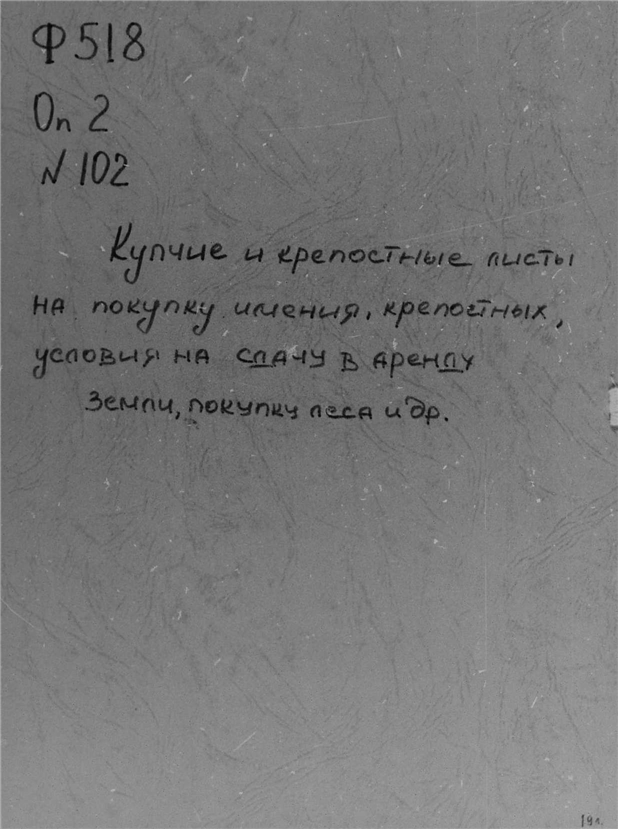 Ф 518
Оп 2
N 102
Купчие и крепостные листы
на покупку имения, крепостных,
условия на сдачу в аренду
земли, покупку леса и др.
19л.